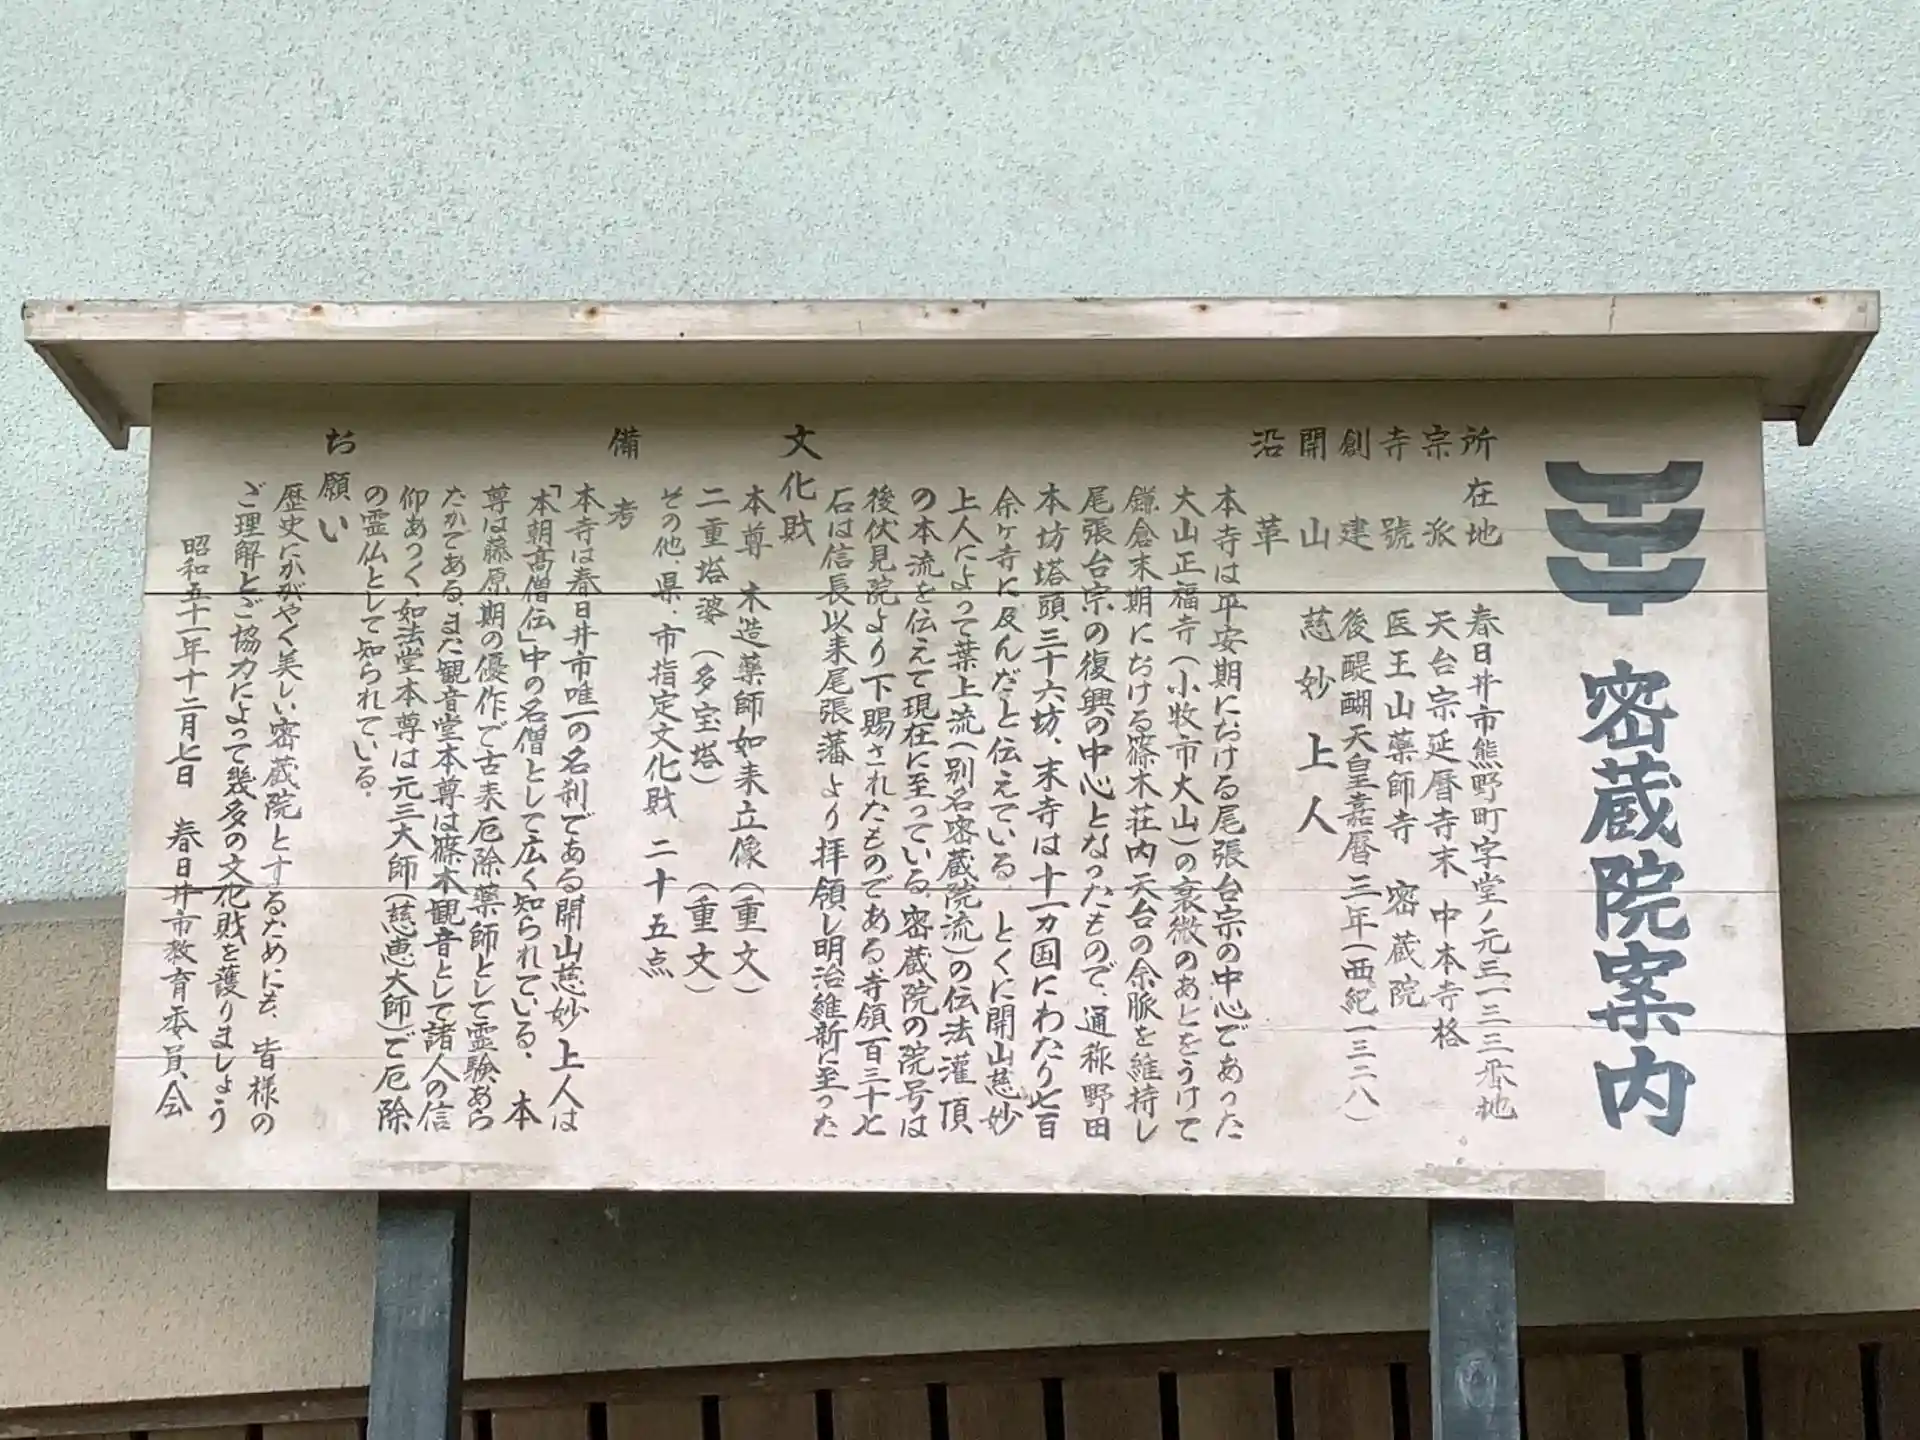 密蔵院案内
所在地 春日井市熊野町字堂ノ元三一三三番地
宗派 天台宗延暦寺末 中本寺格
寺號 医王山薬師寺 密蔵院
創建 後醍醐天皇嘉暦三年(西紀一三二八)
開山 慈妙上人
沿革
本寺は平安期における尾張台宗の中心であった
大山正福寺(小牧市大山)の衰微のあとをうけて
鎌倉末期における篠木荘内天台の余脈を維持し
尾張台宗の復興の中心となったもので、通称野田
本坊塔頭三十六坊、末寺は十一カ国にわたり七百
余ヶ寺に及んだと伝えている。とくに開山慈妙
上人によって葉上流(別名密蔵院流)の伝法灌頂
の本流を伝えて現在に至っている。密蔵院の院号は
後伏見院より下賜されたものである寺領百三十七
石は信長以来尾張藩より拝領し明治維新に至った
文化財
本尊 木造薬師如来立像(重文)
二重塔婆(多宝塔) (重文)
その他、県、市指定文化財 二十五点
備考
本寺は春日井市唯一の名刹である開山慈妙上人は
「本朝高僧伝」中の名僧として広く知られている。本
尊は藤原期の優作で古来厄除薬師として霊験あら
たかである。また観音堂本尊は篠木観音として諸人の信
仰あつく、如法堂本尊は元三大師(慈恵大師)で厄除
の霊仏として知られている。
お願い
歴史にかがやく美しい密蔵院とするためにも、皆様の
ご理解とご協力によって幾多の文化財を護りましょう
昭和五十一年十二月七日 春日井市教育委員会